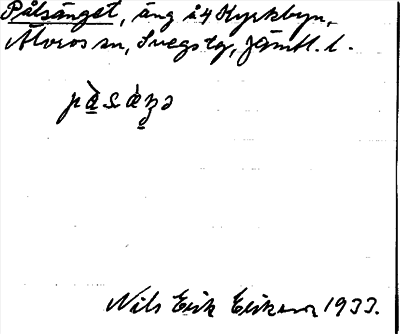 Pålsänget, äng å 4 Kyrkbyn,
Älvros sn, Svegs tg, Jämtl. l.
Nils Erik Eriksson 1933.